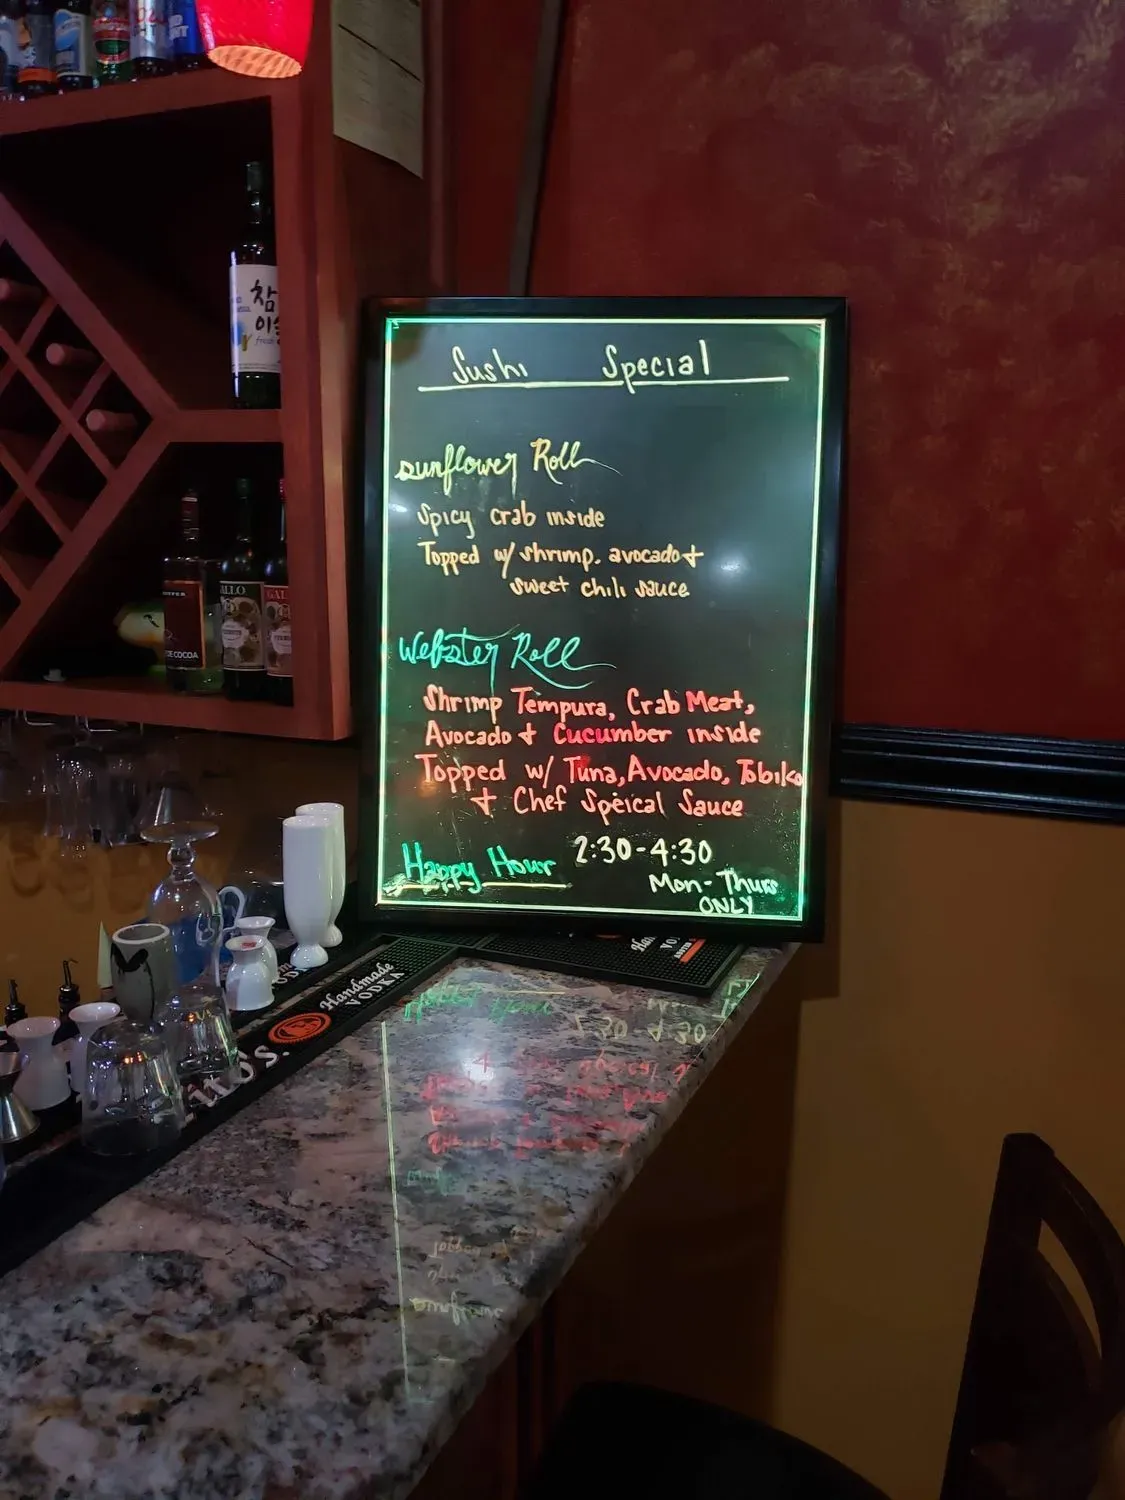 Sushi Special
sunflower Roll
Spicy crab inside
Topped w/ shrimp, avocado +
sweet chili sauce
Webster Roll
Shrimp Tempura, Crab Meat,
Avocado + Cucumber inside
Topped w/ Tuna, Avocado, Tobiko
+ Chef Speical Sauce
Happy Hour 2:30-4:30
Mon-Thurs
ONLY
참
이슬
fresh
DE COCOA
ALLO
GAL
Handmade
VODKA
Tito's.